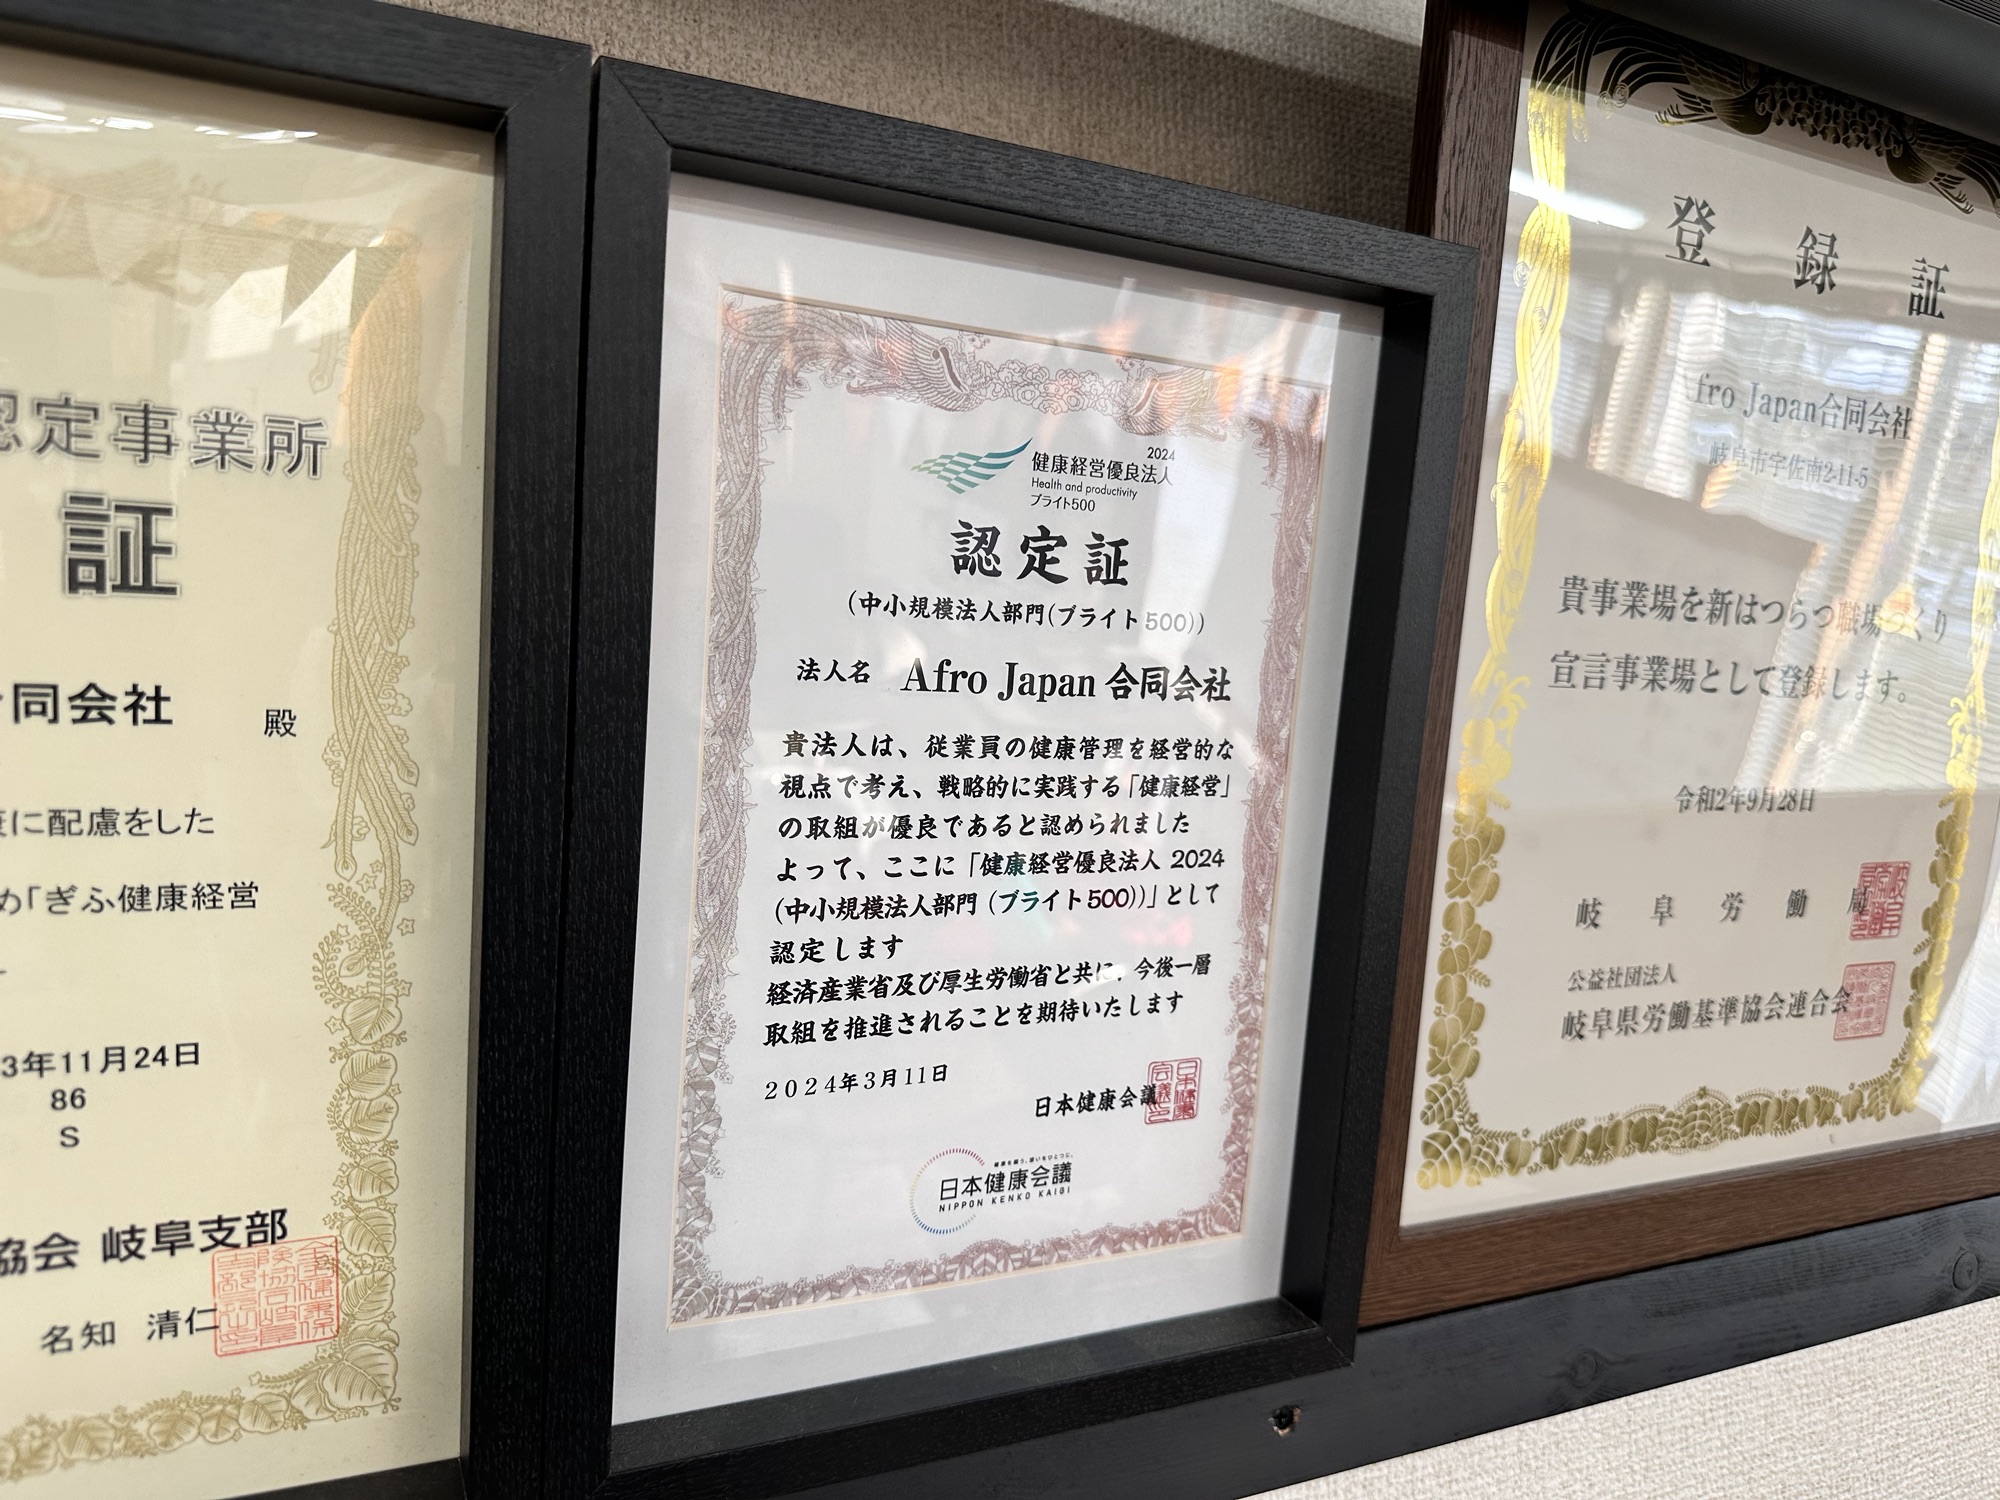 定事業所
証
同会社 殿
に配慮をした
め「ぎふ健康経営
3年11月24日
86
S
協会 岐阜支部
名知 清仁
2024
健康経営優良法人
Health and productivity
ブライト500
認定証
(中小規模法人部門(ブライト500))
法人名 Afro Japan 合同会社
貴法人は、従業員の健康管理を経営的な
視点で考え、戦略的に実践する「健康経営」
の取組が優良であると認められました
よって、ここに「健康経営優良法人 2024
(中小規模法人部門 (ブライト500))」として
認定します
経済産業省及び厚生労働省と共に、今後一層
取組を推進されることを期待いたします
2024年3月11日
日本健康会議
健康を願う、想いをひとつに。
日本健康会議
NIPPON KENKO KAIGI
登録証
fro Japan合同会社
岐阜市宇佐南2-11-5
貴事業場を新はつらつ職場づくり
宣言事業場として登録します。
令和2年9月28日
岐阜労働局
公益社団法人
岐阜県労働基準協会連合会